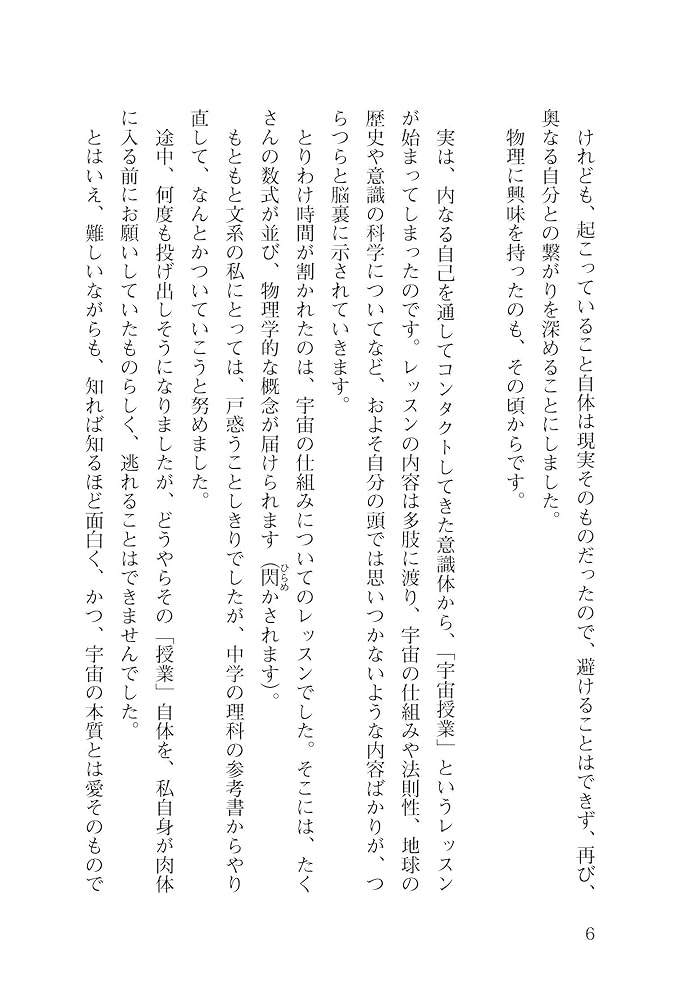 けれども、起こっていること自体は現実そのものだったので、避けることはできず、再び、
奥なる自分との繋がりを深めることにしました。
物理に興味を持ったのも、その頃からです。
実は、内なる自己を通してコンタクトしてきた意識体から、「宇宙授業」というレッスン
が始まってしまったのです。レッスンの内容は多肢に渡り、宇宙の仕組みや法則性、地球の
歴史や意識の科学についてなど、およそ自分の頭では思いつかないような内容ばかりが、つ
らつらと脳裏に示されていきます。
とりわけ時間が割かれたのは、宇宙の仕組みについてのレッスンでした。そこには、たく
さんの数式が並び、物理学的な概念が届けられます（閃かされます）。
ひらめ
もともと文系の私にとっては、戸惑うことしきりでしたが、中学の理科の参考書からやり
直して、なんとかついていこうと努めました。
途中、何度も投げ出しそうになりましたが、どうやらその「授業」自体を、私自身が肉体
に入る前にお願いしていたものらしく、逃れることはできませんでした。
とはいえ、難しいながらも、知れば知るほど面白く、かつ、宇宙の本質とは愛そのもので
6